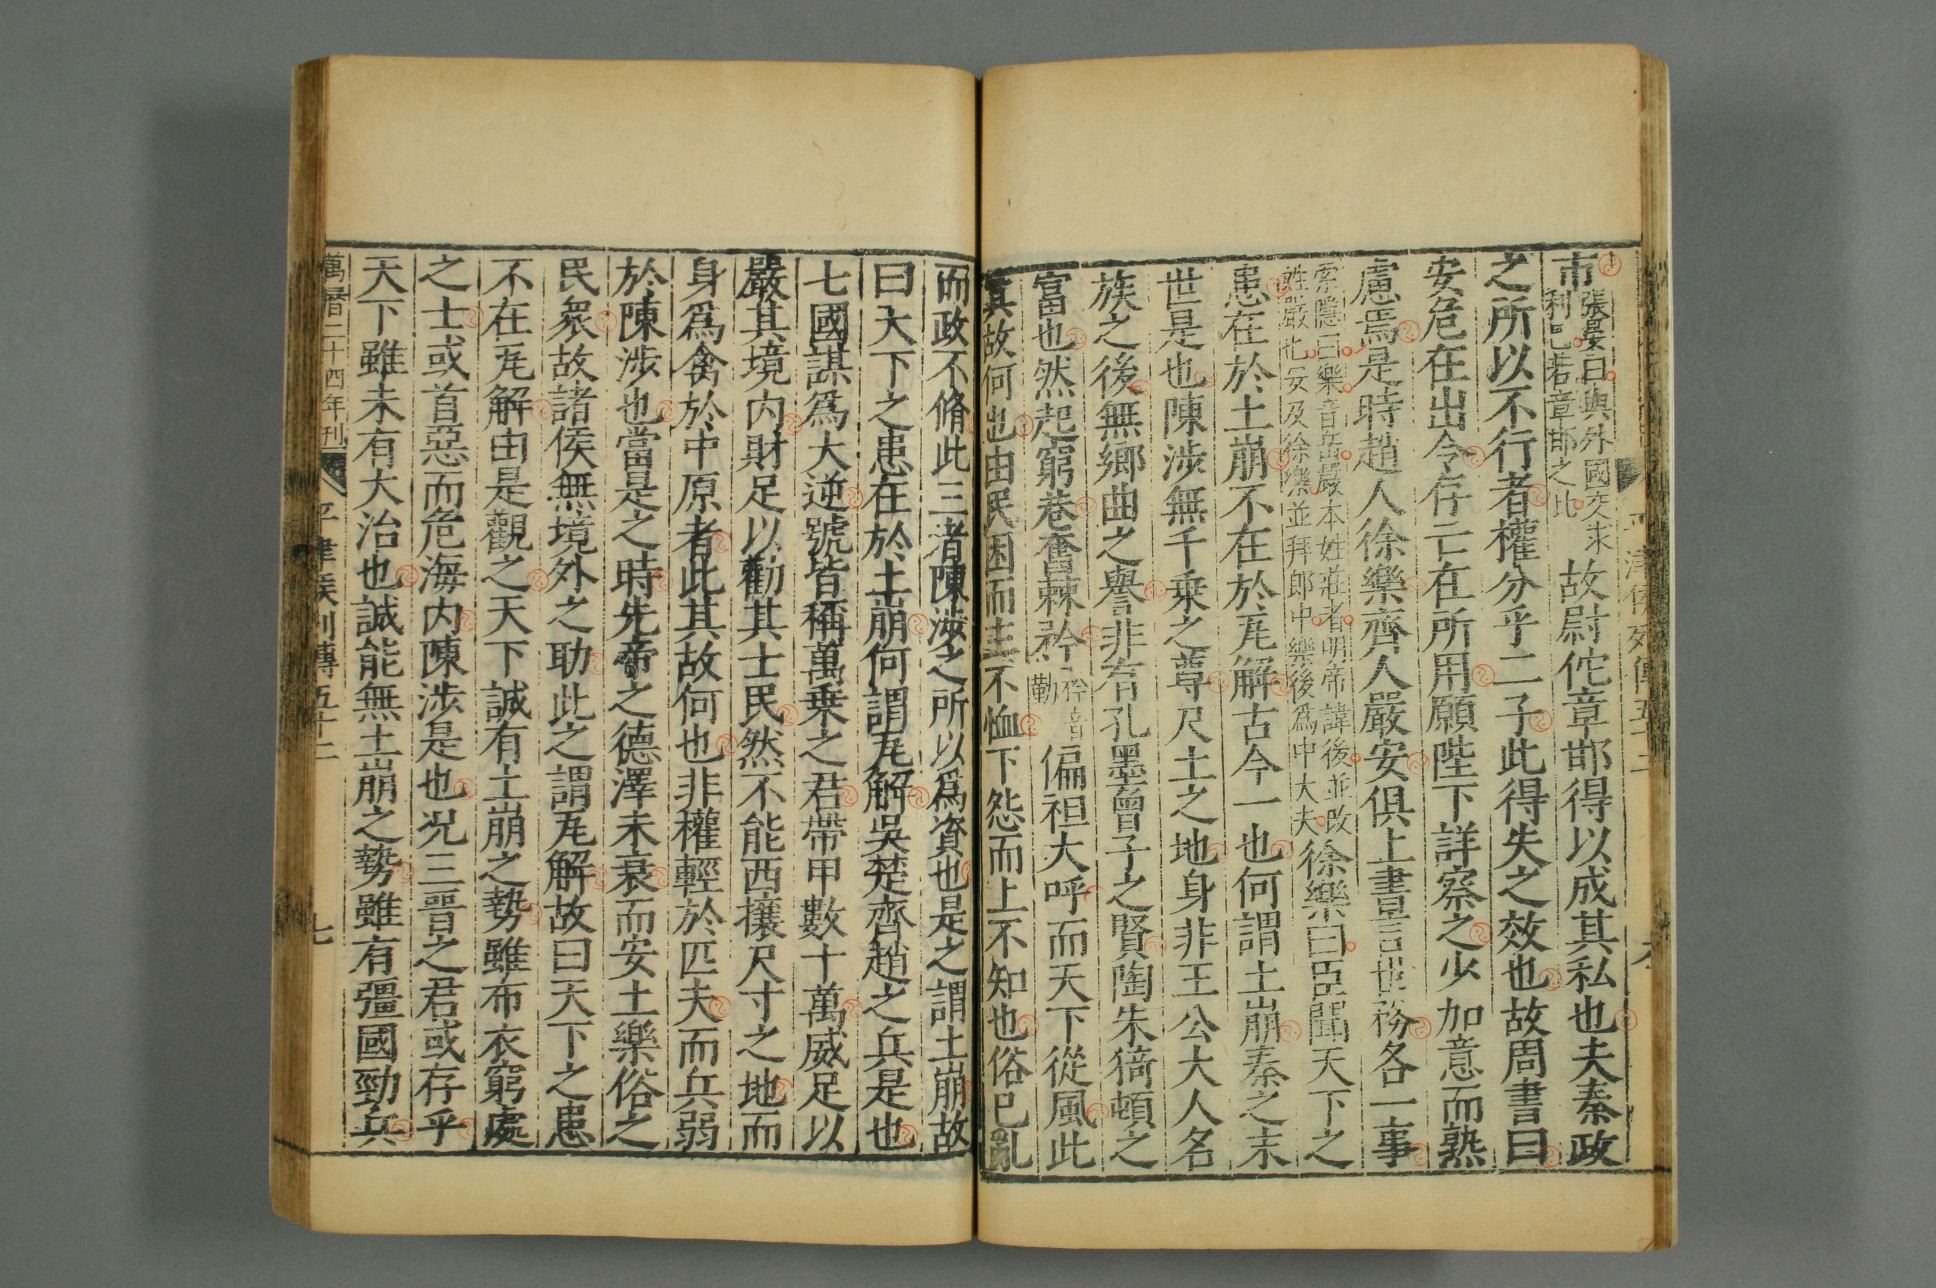 市張晏曰與外國交求利己若章邯之比故尉佗章邯得以成其私也夫秦政
之所以不行者權分乎二子此得失之效也故周書曰
安危在出令存亡在所用願陛下詳察之少加意而熟
慮焉是時趙人徐樂齊人嚴安俱上書言世務各一事
索隱曰樂音岳嚴本姓莊者明帝諱後並改姓嚴也安及徐樂並拜郎中樂後爲中大夫徐樂曰臣聞天下之
患在於土崩不在於瓦解古今一也何謂土崩秦之末
世是也陳涉無千乗之尊尺土之地身非王公大人名
族之後無鄉曲之譽非有孔墨曾子之賢陶朱猗頓之
富也然起窮巷奮棘矜矜音勤偏袒大呼而天下從風此
其故何也由民困而主不恤下怨而上不知也俗已亂
而政不脩此三者陳涉之所以爲資也是之謂土崩故
曰天下之患在於土崩何謂瓦解吳楚齊趙之兵是也
七國謀爲大逆號皆稱萬乗之君帶甲數十萬威足以
嚴其境内財足以勸其士民然不能西攘尺寸之地而
身爲禽於中原者此其故何也非權輕於匹夫而兵弱
於陳涉也當是之時先帝之德澤未衰而安土樂俗之
民衆故諸侯無境外之助此之謂瓦解故曰天下之患
不在瓦解由是觀之天下誠有土崩之勢雖布衣窮處
之士或首惡而危海内陳涉是也况三晉之君或存乎
天下雖未有大治也誠能無土崩之勢雖有彊國勁兵
萬曆二十四年刊
平津侯列傳五十二
七